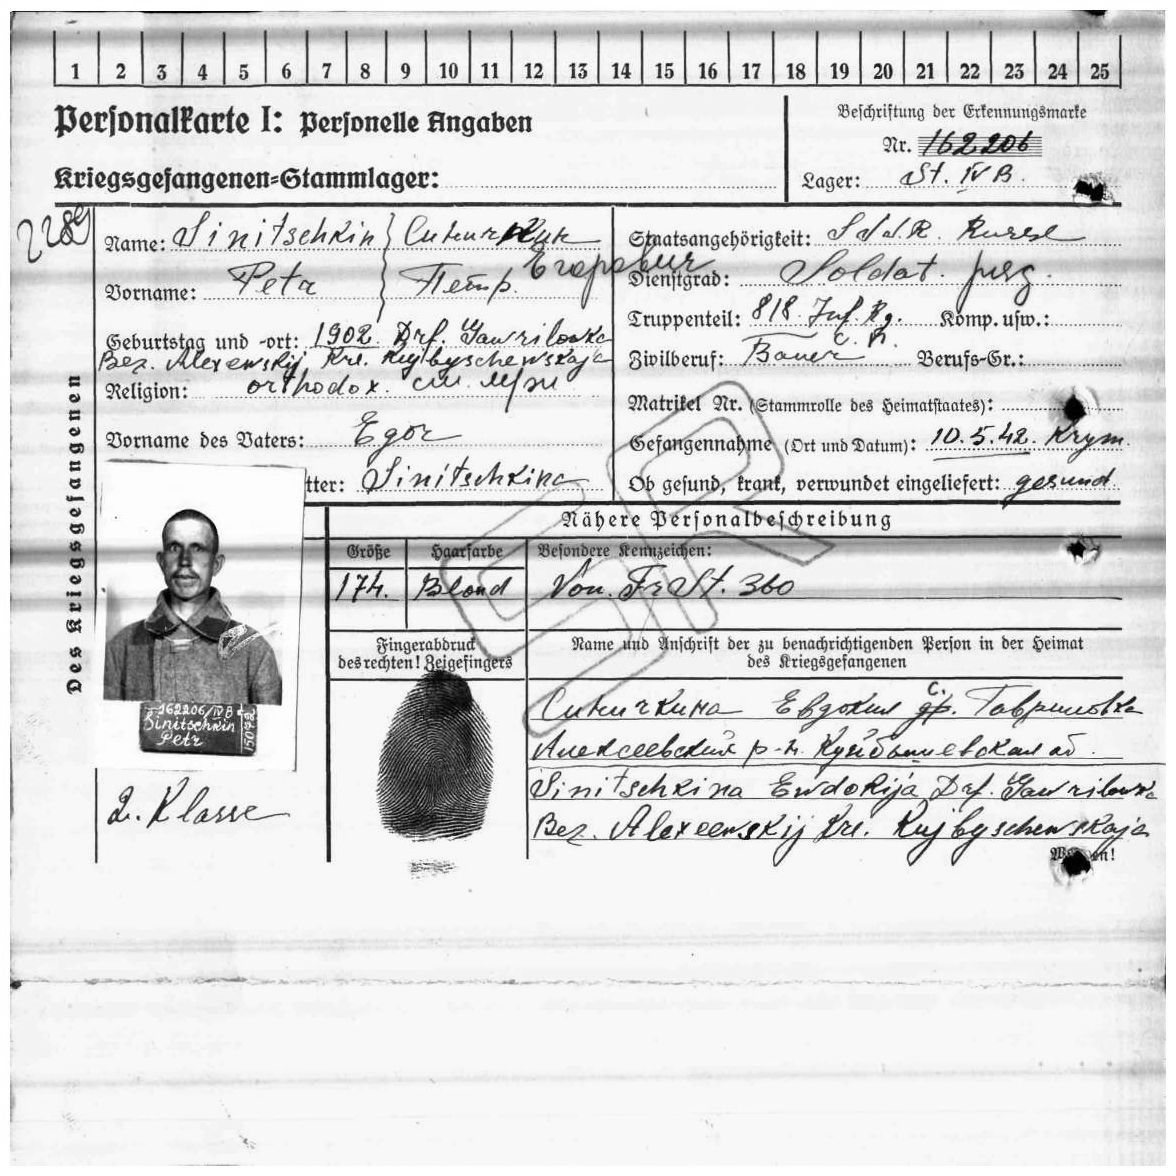 1 2 3 4 5 6 7 8 9 10 11 12 13 14 15 16 17 18 19 20 21 22 23 24 25
Personalkarte I: Personelle Angaben
Beschriftung der Erkennungsmarke
Nr. 162206
Kriegsgefangenen=Stammlager:
Lager: St. IV B.
2289
Des Kriegsgefangenen
Name: Sinitschkin Синичкин
Vorname: Petr Петр. Егорович
Geburtstag und -ort: 1902 Drf. Gawrilowka
Bez. Alexewskij Kre. Kujbyschewskaja
Religion: orthodox.
Vorname des Vaters: Egor
tter: Sinitschkina
Staatsangehörigkeit: SdSR. Russe
Dienstgrad: Soldat.
Truppenteil: 818 Inf. Rg. Komp. usw.:
Zivilberuf: Bauer Berufs-Gr.:
Matrikel Nr. (Stammrolle des Heimatstaates):
Gefangennahme (Ort und Datum): 10.5.42. Krym.
Ob gesund, krank, verwundet eingeliefert: gesund
SR
Nähere Personalbeschreibung
Größe Haarfarbe Besondere Kennzeichen:
174. Blond Von. Fr St. 360
Fingerabdruck
des rechten! Zeigefingers
Name und Anschrift der zu benachrichtigenden Person in der Heimat
des Kriegsgefangenen
Синичкина Евдокия с. Гавриловка
Алексеевский р-н. Куйбышевская об.
Sinitschkina Ewdokija Drf. Gawrilowka
Bez. Alexeewskij Kre. Kujbyschewskaja
162206/IV B
Sinitschkin
Petr
2. Klasse